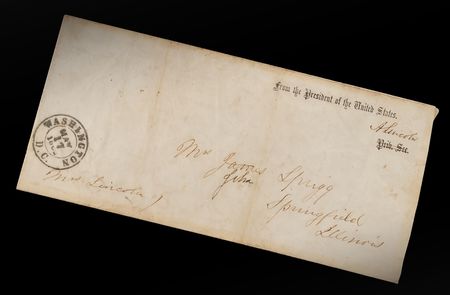 From the President of the United States.
A Lincoln
Priv. Sec.
WASHINGTON
D.C.
MAY
Mrs James Sprigg
John
Springfield
Illinois
(Mrs Lincoln)